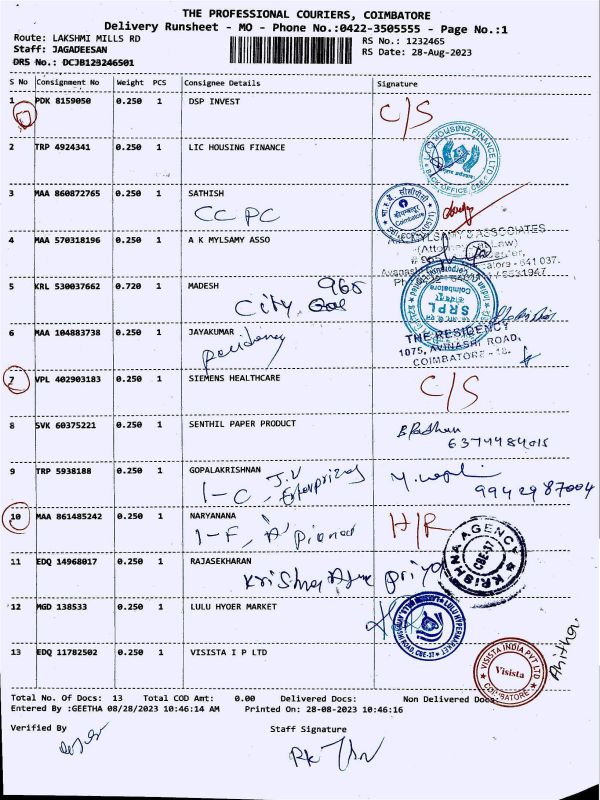 THE PROFESSIONAL COURIERS, COIMBATORE
Delivery Runsheet - MO - Phone No.:0422-3505555 - Page No.:1
Route: LAKSHMI MILLS RD
Staff: JAGADEESAN
DRS No.: DCJB128246501
RS No.: 1232465
RS Date: 28-Aug-2023
S No Consignment No Weight PCS Consignee Details Signature
1 PDK 8159050 0.250 1 DSP INVEST C/S
2 TRP 4924341 0.250 1 LIC HOUSING FINANCE
LIC HOUSING FINANCE LTD
BACK OFFICE, CBE
3 MAA 860872765 0.250 1 SATHISH
CCPC
Coimbatore
4 MAA 570318196 0.250 1 A K MYLSAMY ASSO
MYLSAMY & ASSOCIATES
641 037.
5 KRL 530037662 0.720 1 MADESH 965
City
SRPL
Coimbatore
6 MAA 104883738 0.250 1 JAYAKUMAR
THE RESIDENCY
1075, AVINASHI ROAD,
COIMBATORE - 18.
7 VPL 402903183 0.250 1 SIEMENS HEALTHCARE C/S
8 SVK 60375221 0.250 1 SENTHIL PAPER PRODUCT
9 TRP 5938188 0.250 1 GOPALAKRISHNAN
J.V
I-C
9942987004
10 MAA 861485242 0.250 1 NARYANANA H/R
I-F, A
11 EDQ 14968017 0.250 1 RAJASEKHARAN
Krishna priya
KRISHNA AGENCY
CBE-37
12 MGD 138533 0.250 1 LULU HYOER MARKET
LULU HYPERMARKET
13 EDQ 11782502 0.250 1 VISISTA I P LTD
VISISTA INDIA PVT LTD
Visista
COIMBATORE
Total No. Of Docs: 13 Total COD Amt: 0.00 Delivered Docs: Non Delivered Docs:
Entered By :GEETHA 08/28/2023 10:46:14 AM Printed On: 28-08-2023 10:46:16
Verified By Staff Signature